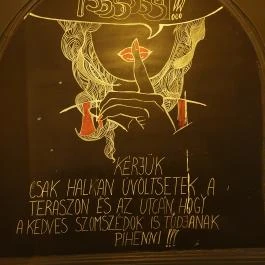 KÉRJÜK
CSAK HALKAN ÜVÖLTSETEK A
TERASZON ÉS AZ UTCÁN, HOGY
A KEDVES SZOMSZÉDOK IS TUDJANAK
PIHENNI!!!